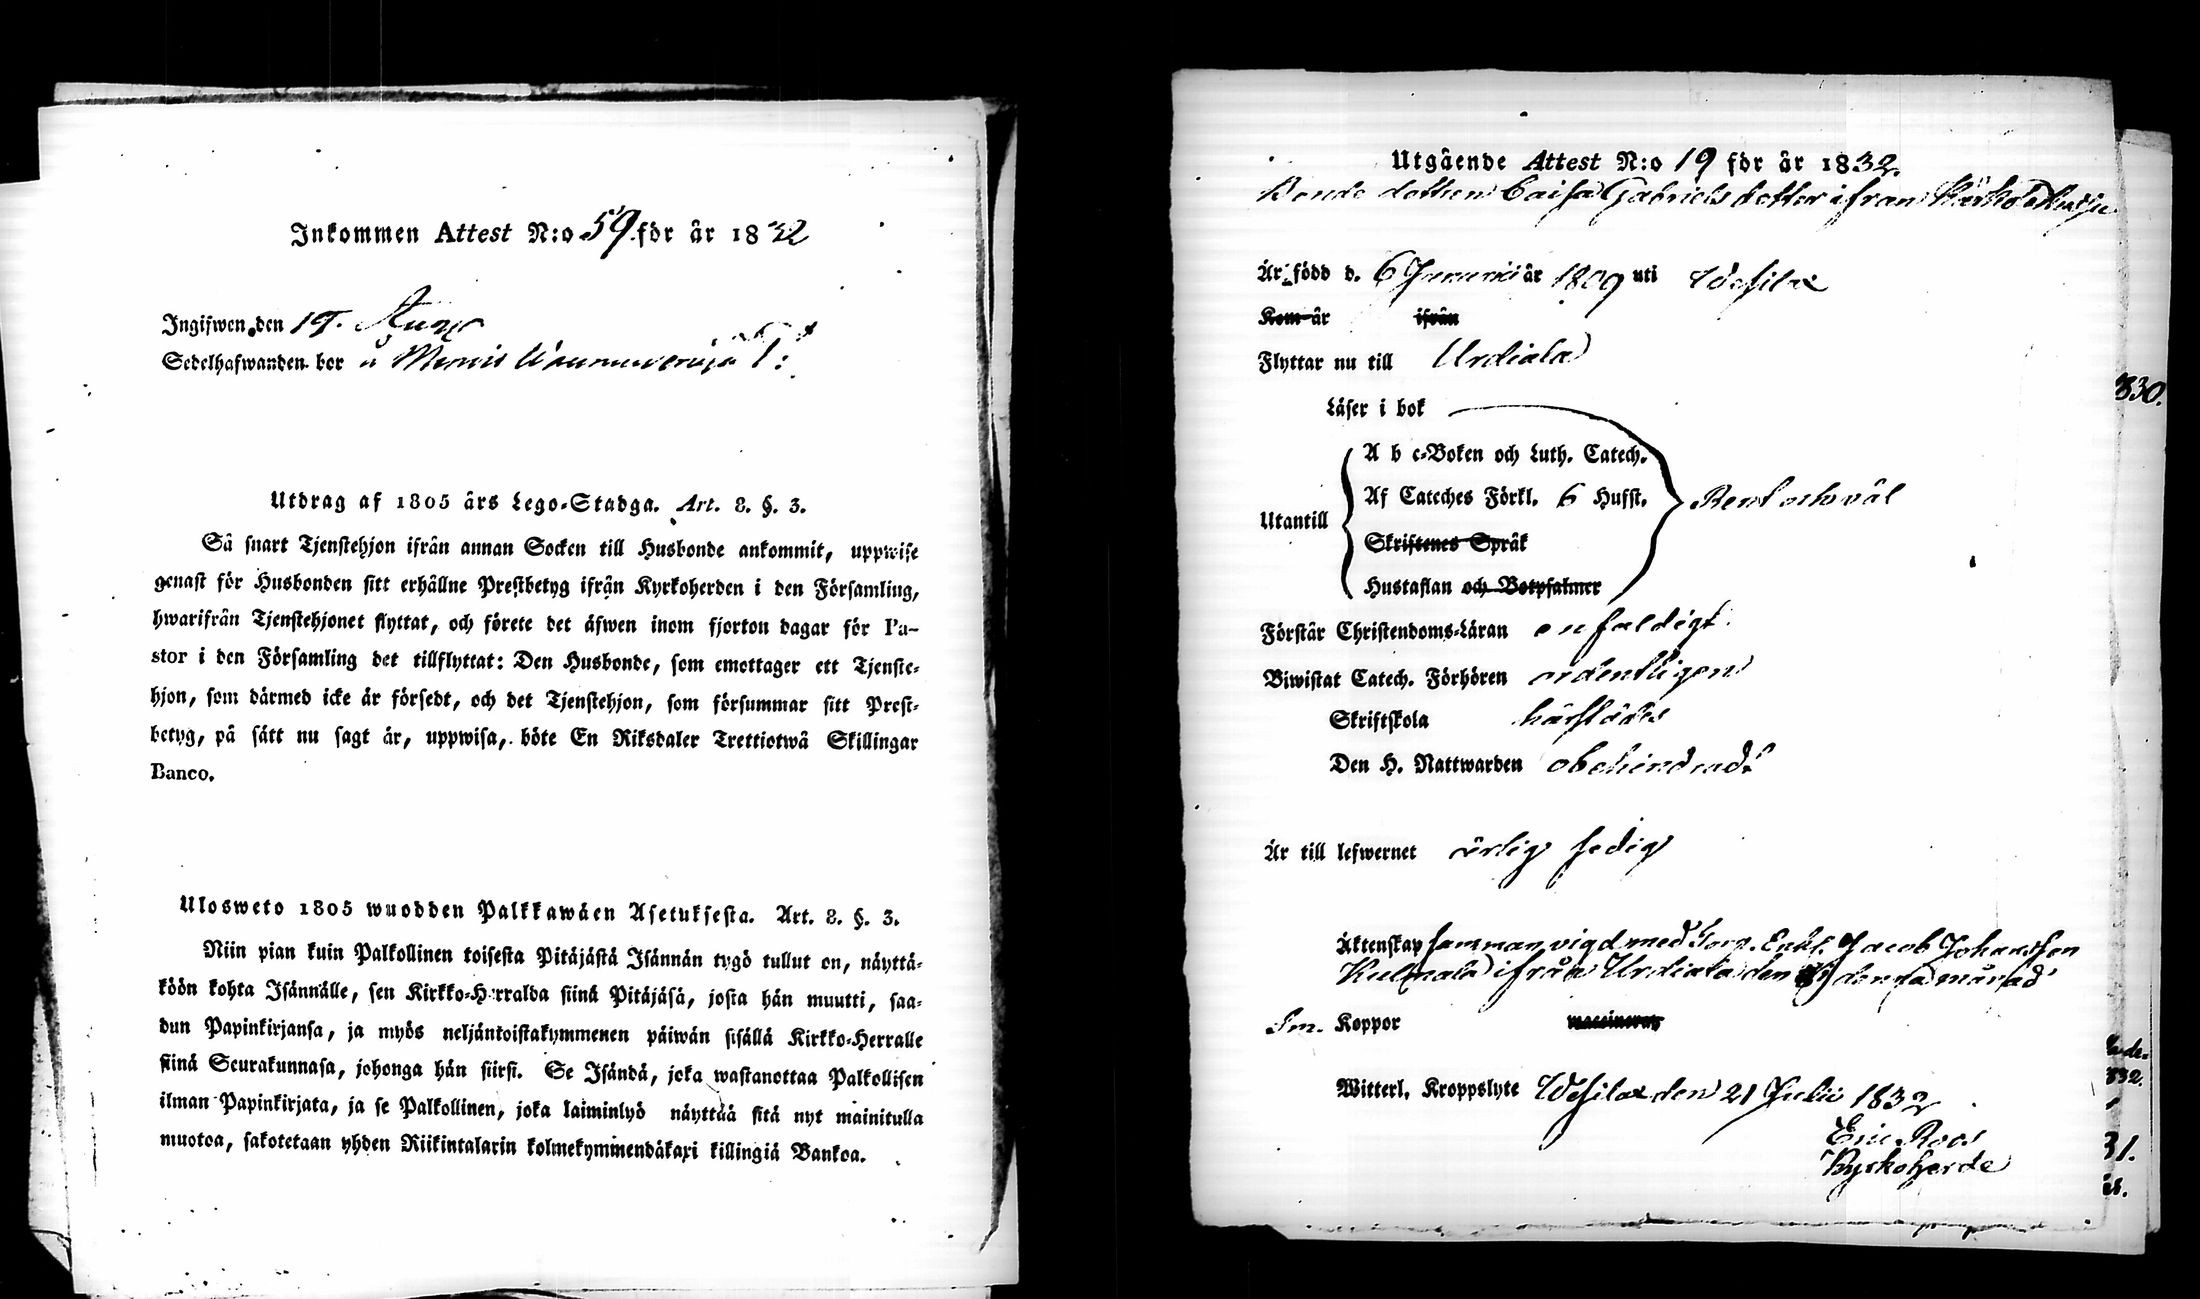 Inkommen Attest N:o 59 för år 1832
Ingifwen den 19. Aug
Sedelhafwanden bor å
Utdrag af 1805 års Lego-Stadga. Art. 8. §. 3.
Så snart Tjenstehjon ifrån annan Socken till Husbonde ankommit, uppwise
genast för Husbonden sitt erhållne Prestbetyg ifrån Kyrkoherden i den Församling,
hwarifrån Tjenstehjonet flyttat, och förete det äfwen inom fjorton dagar för Pa-
stor i den Församling det tillflyttat: Den Husbonde, som emottager ett Tjenste-
hjon, som därmed icke är försedt, och det Tjenstehjon, som försummar sitt Prest-
betyg, på sätt nu sagt är, uppwisa, böte En Riksdaler Trettiotwå Skillingar
Banco.
Ulosweto 1805 wuodden Palkkawäen Asetuksesta. Art. 8. §. 3.
Niin pian kuin Palkollinen toisesta Pitäjästä Isännän tygö tullut on, näyttä-
köön kohta Isännälle, sen Kirkko-Herralda siinä Pitäjäsä, josta hän muutti, saa-
dun Papinkirjansa, ja myös neljäntoistakymmenen päiwän sisällä Kirkko-Herralle
siinä Seurakunnasa, johonga hän siirsi. Se Isändä, joka wastanottaa Palkollisen
ilman Papinkirjata, ja se Palkollinen, joka laiminlyö näyttää sitä nyt mainitulla
muotoa, sakotetaan yhden Riikintalarin kolmekymmendäkaxi killingiä Bankoa.
Utgående Attest N:o 19 för år 1832.
Bonde dottern Caisa Gabrielsdotter ifrån
Är född d. 6 Januarii år 1809 uti Wesilax
Kom år ifrån
Flyttar nu till Urdiala
Läser i bok
Utantill
A b c-Boken och Luth. Catech.
Af Cateches Förkl. 6 Hufst.
Skriftenes Språk
Hustaflan och Botpsalmer
Rent och väl
Förstår Christendoms-Läran enfaldigt.
Biwistat Catech. Förhören ordenteligen
Skriftskola härstädes
Den H. Nattwarden obehindrad
Är till lefwernet ärlig sedig
Äktenskap samman vigd med Torp. Enkl. Jacob Johansson
ifrån Urdiala den denna månad
Koppor
Witterl. Kroppslyte Wesilax den 21 Julii 1832
Eric Roos
Kyrkoherde
830.
832.
31.